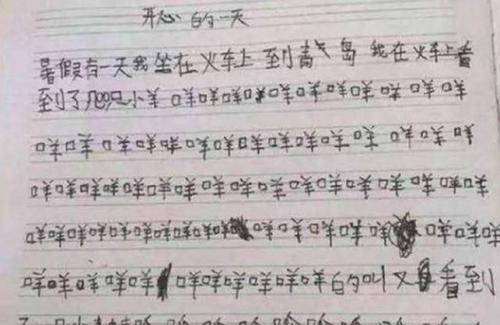 开心的一天
暑假有一天我坐在火车上到青岛 我在火车上看
到了几只小羊 咩咩咩咩咩咩咩咩咩咩咩
咩咩咩咩咩咩咩咩咩咩咩咩咩咩咩咩
咩咩咩咩咩咩咩咩咩咩咩咩咩咩咩咩咩
咩咩咩咩咩咩咩咩咩咩咩咩咩咩咩咩咩
咩咩咩咩咩咩咩咩咩咩咩的叫又看到